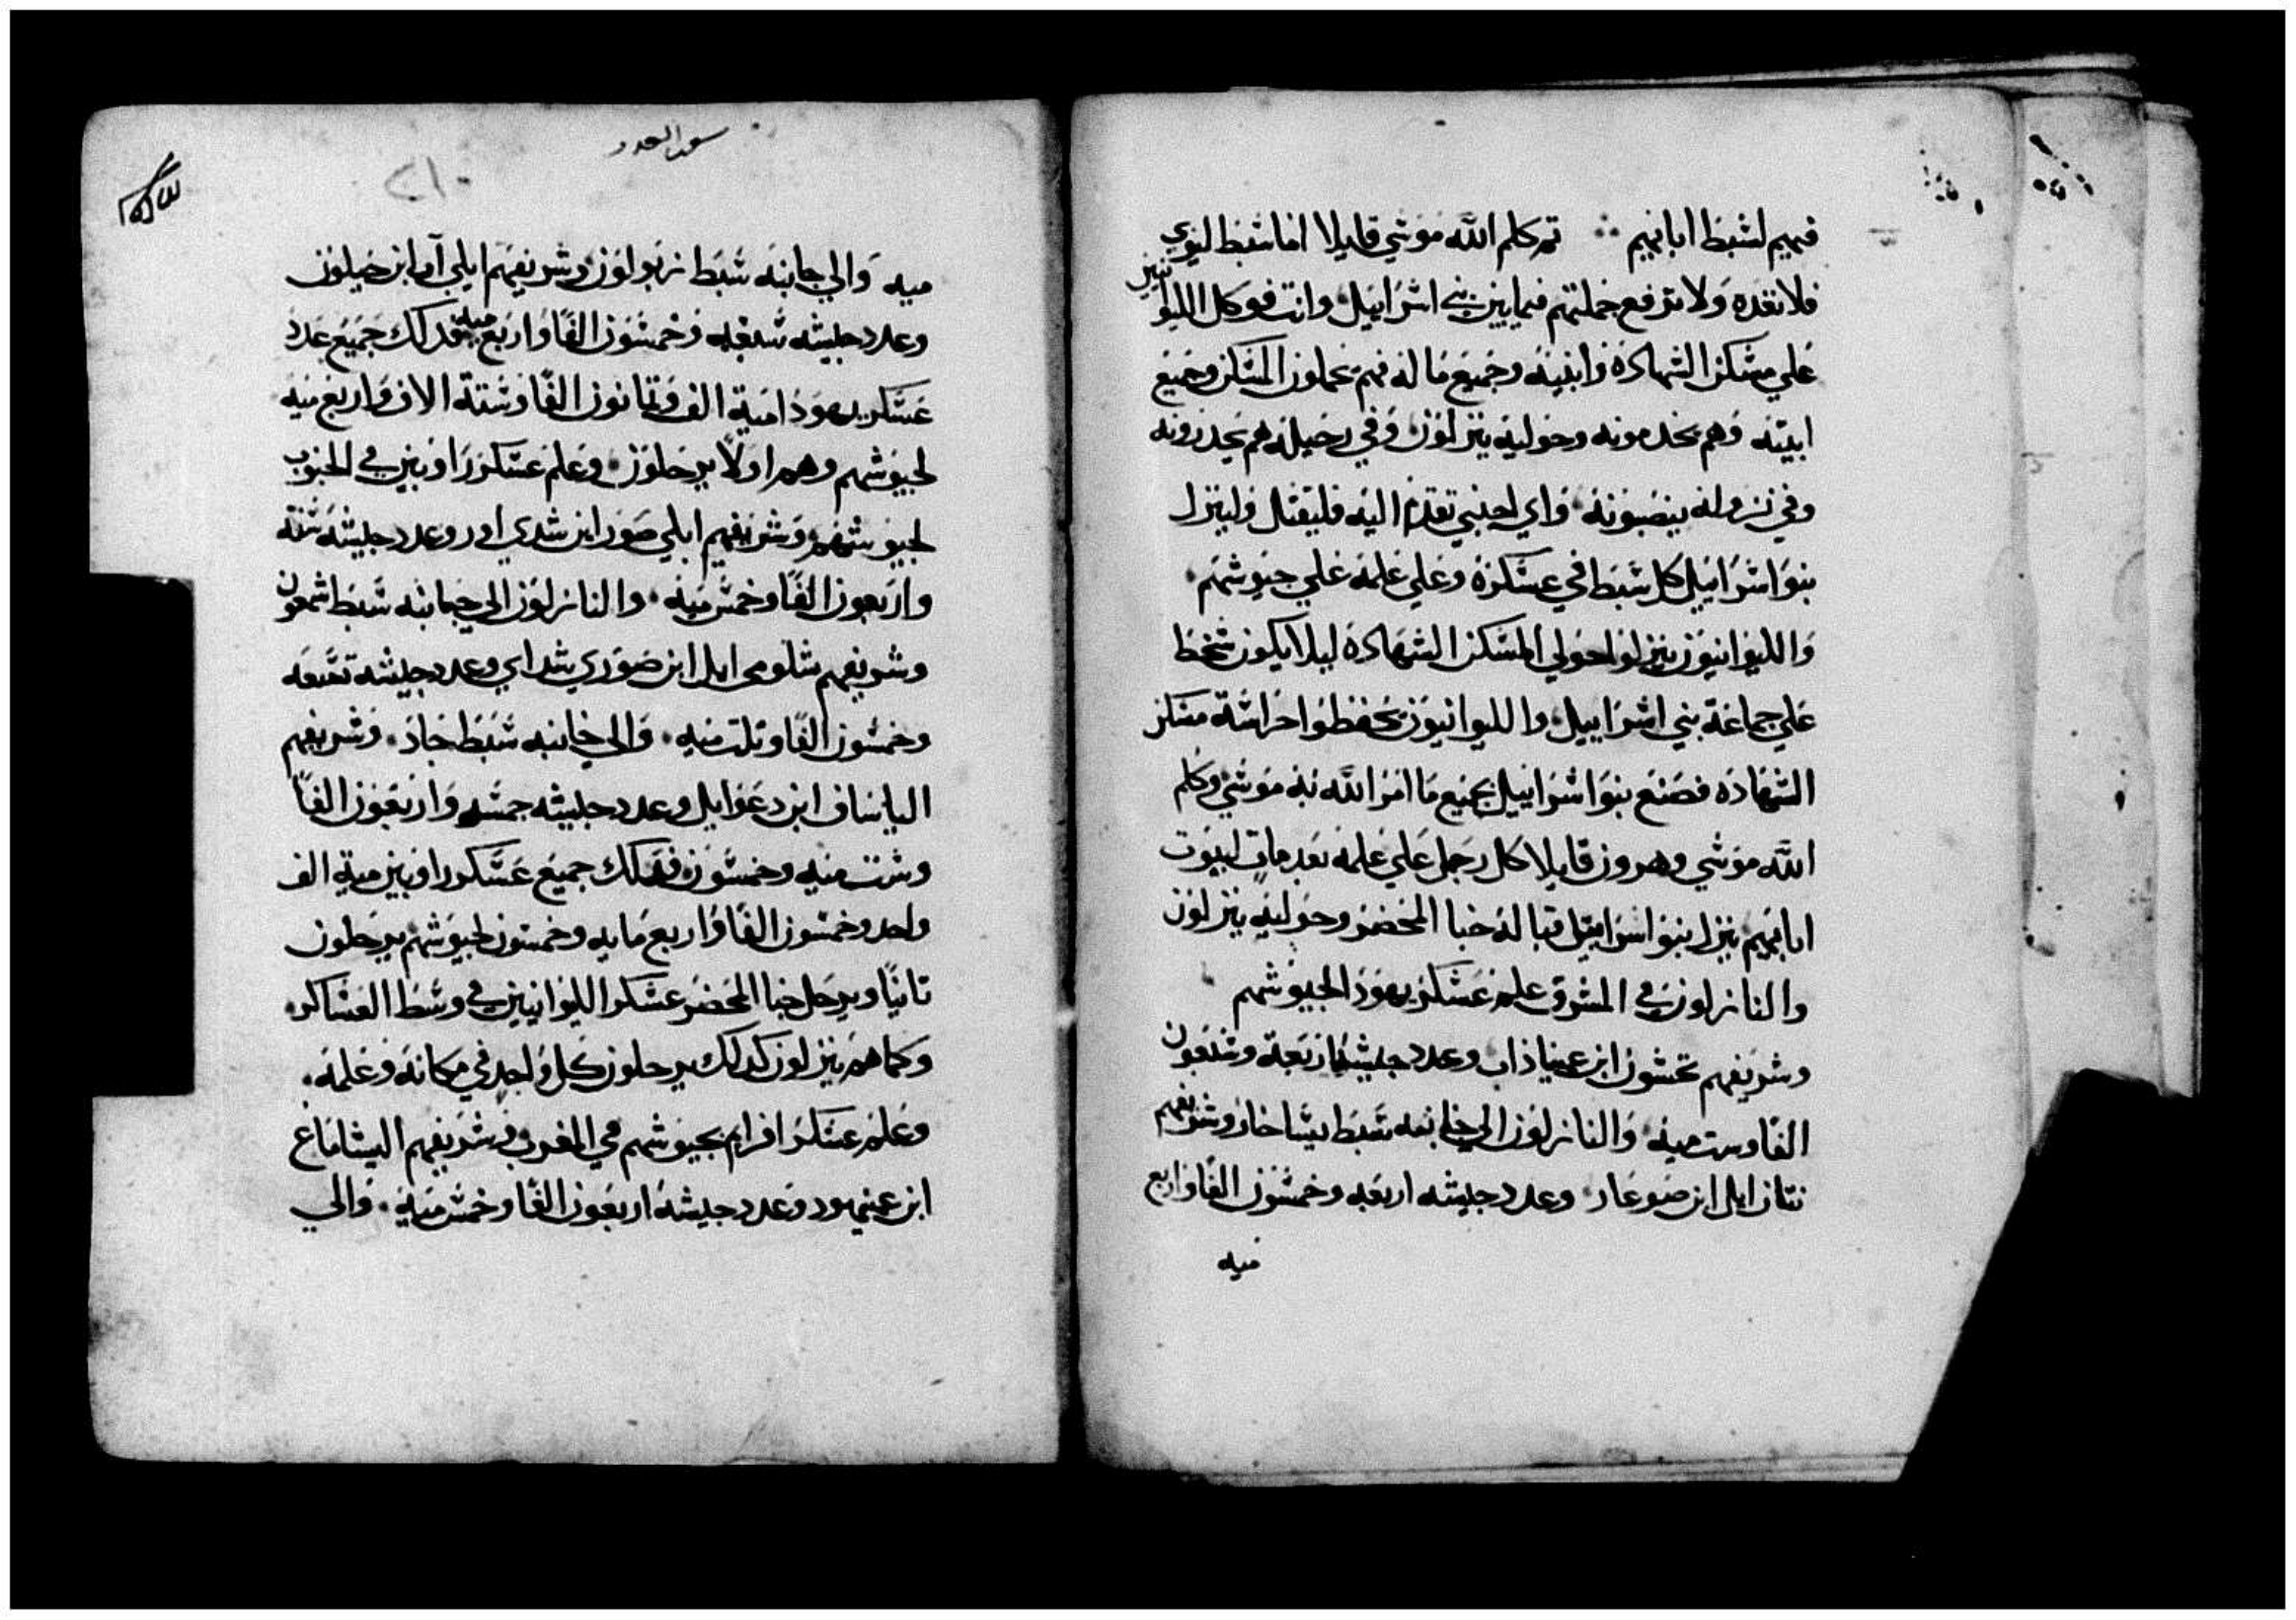 فيهم لشبط ابايهم ∴ تم كلم الله موشي قايلا اما شبط ليوي
فلا تعده ولا ترفع جملتهم فيما بين بني اشراييل وانت فوكل الليوانيين
علي مشكن الشهاده وابنيته وجميع ما له فهم يحملون المشكن وجميع
ابنيته وهم يخدمونه وحوليه ينزلون وفي رحيله هم يحدرونه
وفي نزوله ينصبونه واي اجنبي تقدم اليه فليقتل ولينزل
بنوا اشراييل كل شبط في عسكره وعلي علمه علي جيوشهم
والليوانيون ينزلوا حولي المشكن الشهاده ليلا يكون سخط
علي جماعة بني اشراييل والليوانيون يحفظوا حراشة مشكن
الشهاده فصنع بنوا اشراييل بجميع ما امر الله به موشي وكلم
الله موشي وهرون قايلا كل رجل علي علمه بعد مات لبيوت
ابايهم ينزل بنوا اسراييل قبالة خبا المحضر وحوليه ينزلون
والنازلون في المشرق علم عسكر يهودا لجيوشهم
وشريفهم نحشون ابن عميناذاب وعدد جيشه اربعة وسبعون
الفا وست ميه والنازلون الي جانبه شبط يشاخار وشريفهم
نتان ايل ابن صوعار وعدد جيشه اربعه وخمسون الفا واربع
ميه
سفر العدد
٢١٠
ميه والي جانبه شبط زبولون وشريفهم ايلي آب ابن حيلون
وعدد جيشه شبعه وخمشون الفا واربع ميه فدلك جميع عدد
عسكر يهودا مية الف وتمانون الفا وستة الاف واربع ميه
لجيوشهم وهم اولا يرحلون وعلم عسكر راوبين في الجنوب
لجيوشهم وشريفهم ايلي صور ابن شدي اور وعدد جيشه ستة
واربعون الفا وخمس ميه والنازلون الي جانبه شبط شمعون
وشريفهم شلومي ايل ابن صوري شداي وعدد جيشه تسعه
وخمشون الفا وتلت ميه والي جانبه شبط جاد وشريفهم
الياساف ابن دعوايل وعدد جيشه خمسه واربعون الفا
وست ميه وخمسون فدلك جميع عسكر راوبين مية الف
واحد وخمسون الفا واربع مايه وخمسون لجيوشهم يرحلون
تانيا ويرحل خبا المحضر عسكر الليوانيين في وسط العساكر
وكما هم ينزلون كدلك يرحلون كل واحد في مكانه وعلمه
وعلم عسكر افرايم بجيوشهم في المغرب وشريفهم اليشاماع
ابن عميهود وعدد جيشه اربعون الفا وخمس ميه والي